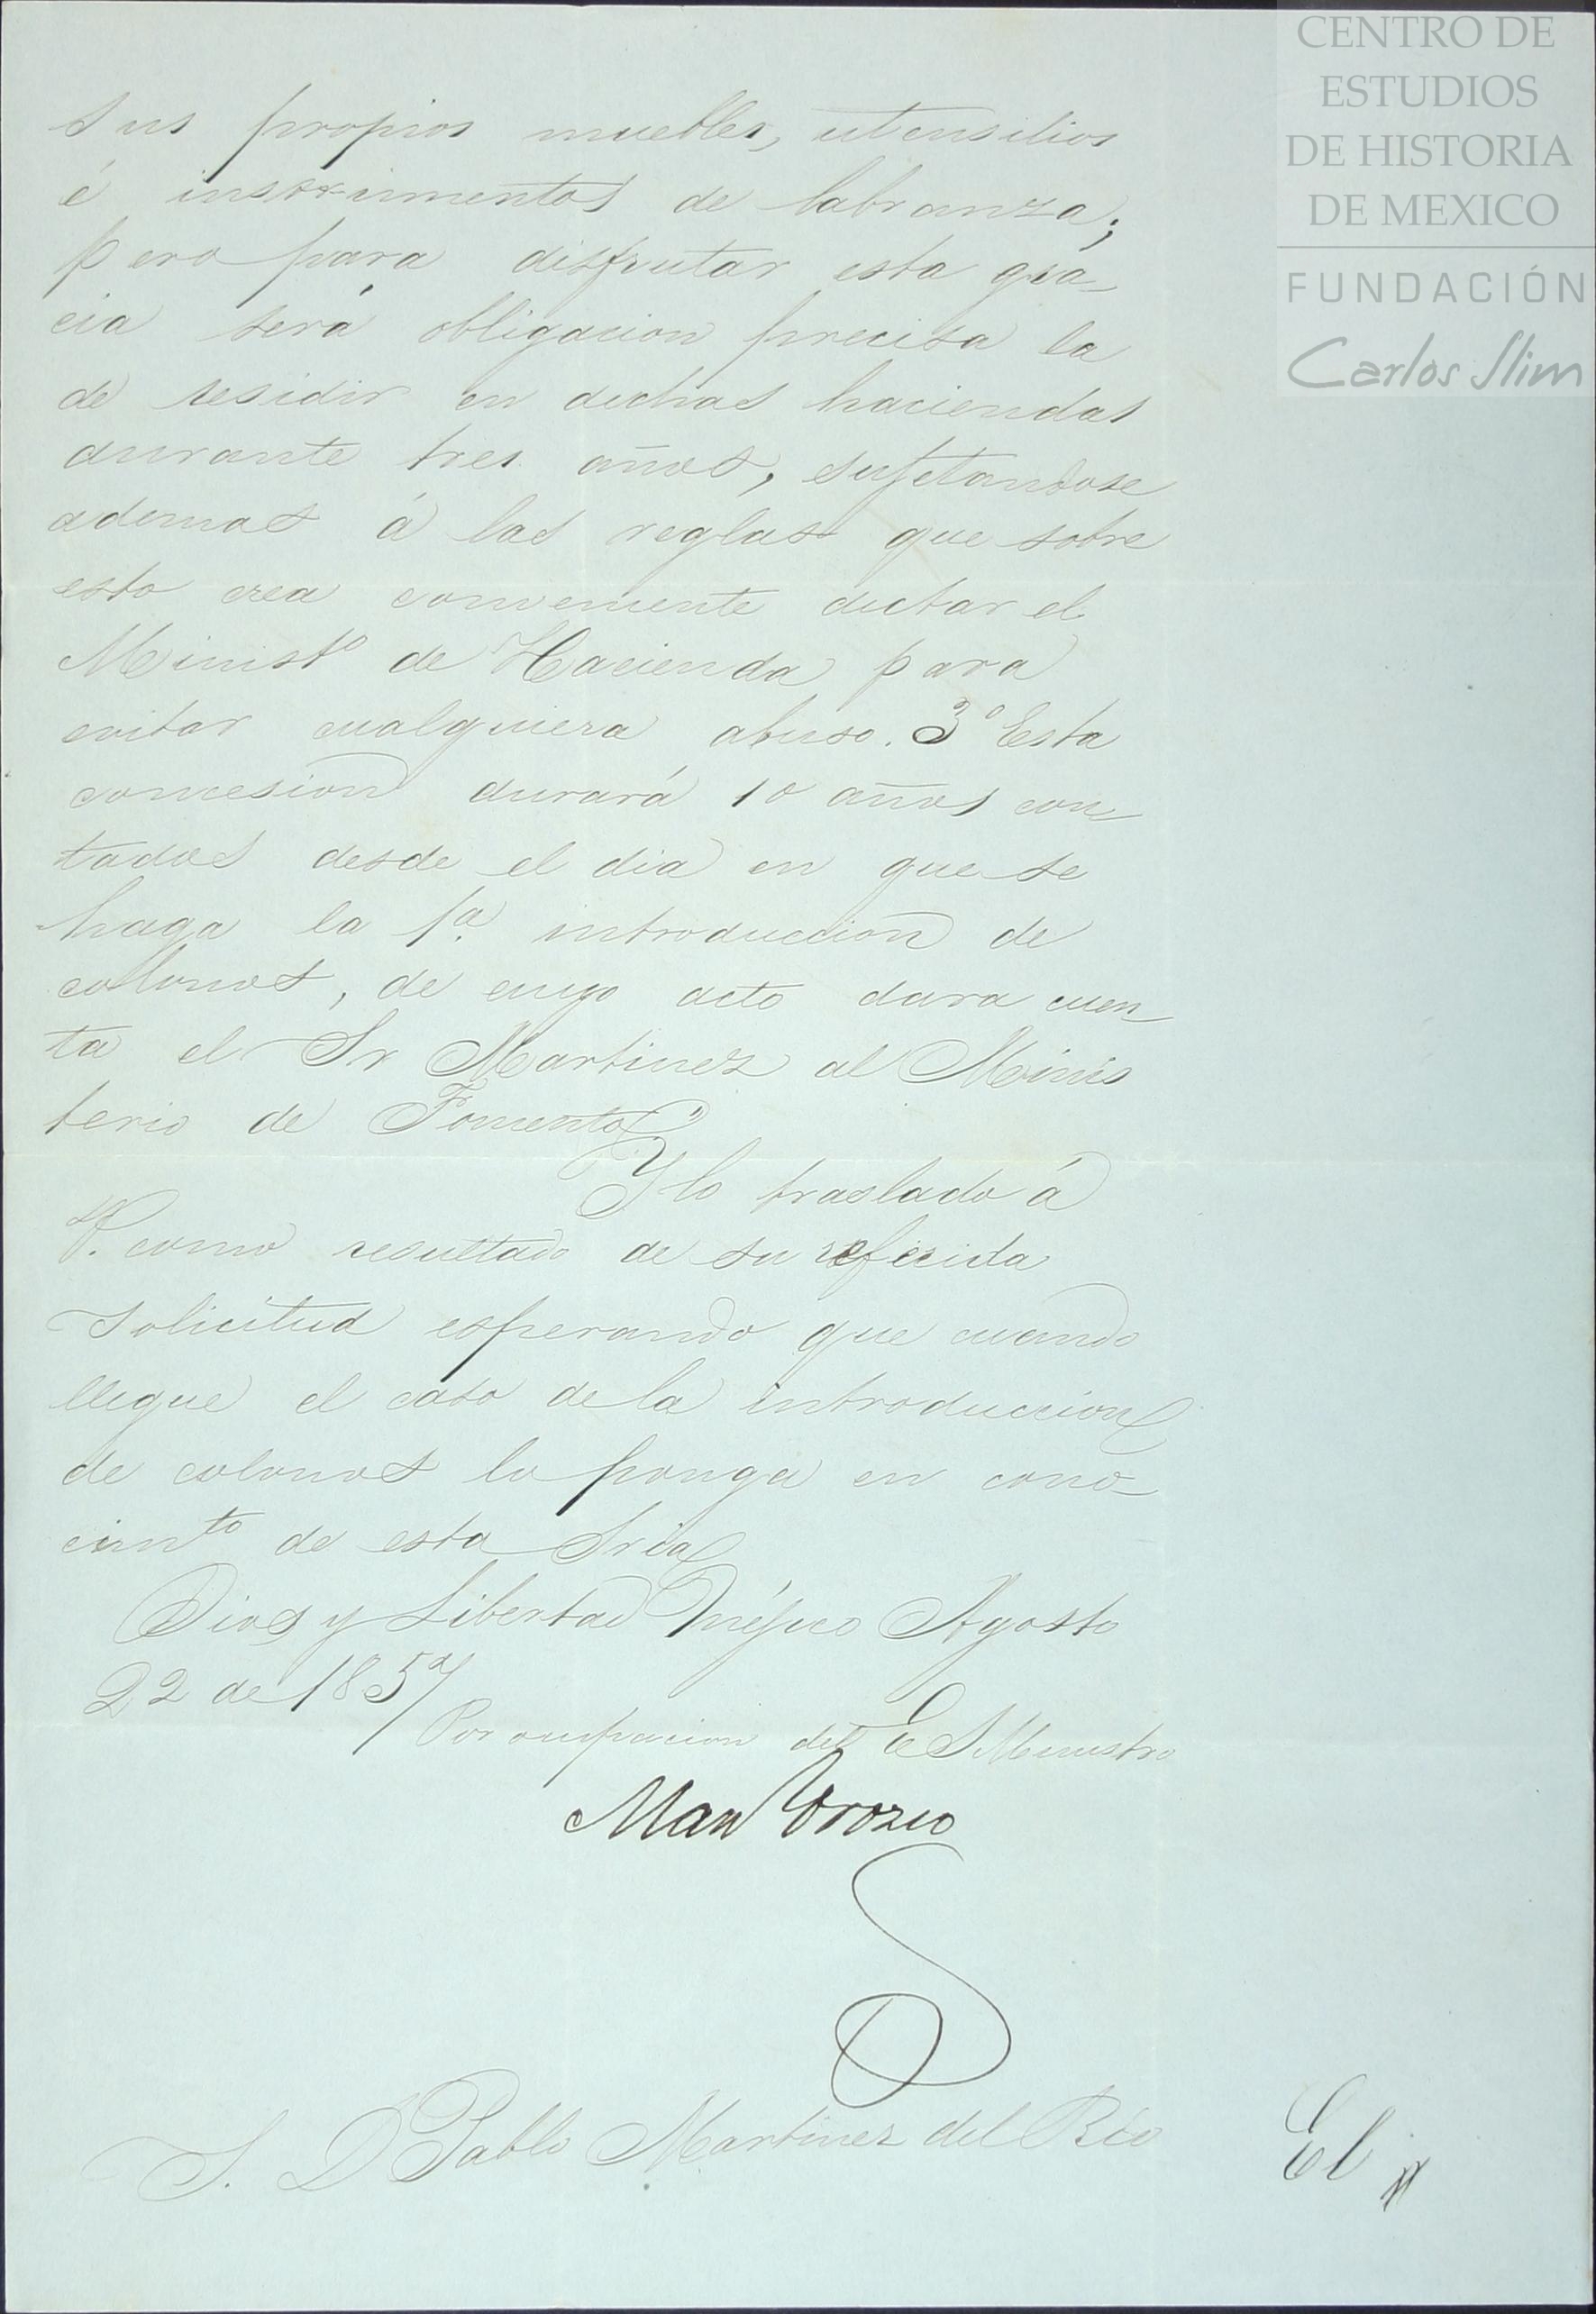 CENTRO DE
ESTUDIOS
DE HISTORIA
DE MEXICO
FUNDACIÓN
Carlos Slim
sus propios muebles, utensilios
é instrumentos de labranza;
pero para disfrutar esta gra-
cia será obligacion precisa la
de residir en dichas haciendas
durante tres años, sujetandose
ademas á las reglas que sobre
esto crea conveniente dictar el
Ministº de Hacienda para
evitar cualquiera abuso. 3º Esta
concesion durará 10 años con-
tados desde el dia en que se
haga la 1ª introduccion de
colonos, de cuyo acto dara cuen-
ta el Sr Martinez al Minis
terio de Fomento"
Y lo traslado á
V. como resultado de su referida
solicitud esperando que cuando
llegue el caso de la introduccion
de colonos lo ponga en cono-
cimto de esta Sria
Dios y Libertad Méjico Agosto
22 de 1857
Por ocupacion del E S Ministro
Man Orozco
S. D Pablo Martinez del Rio
El